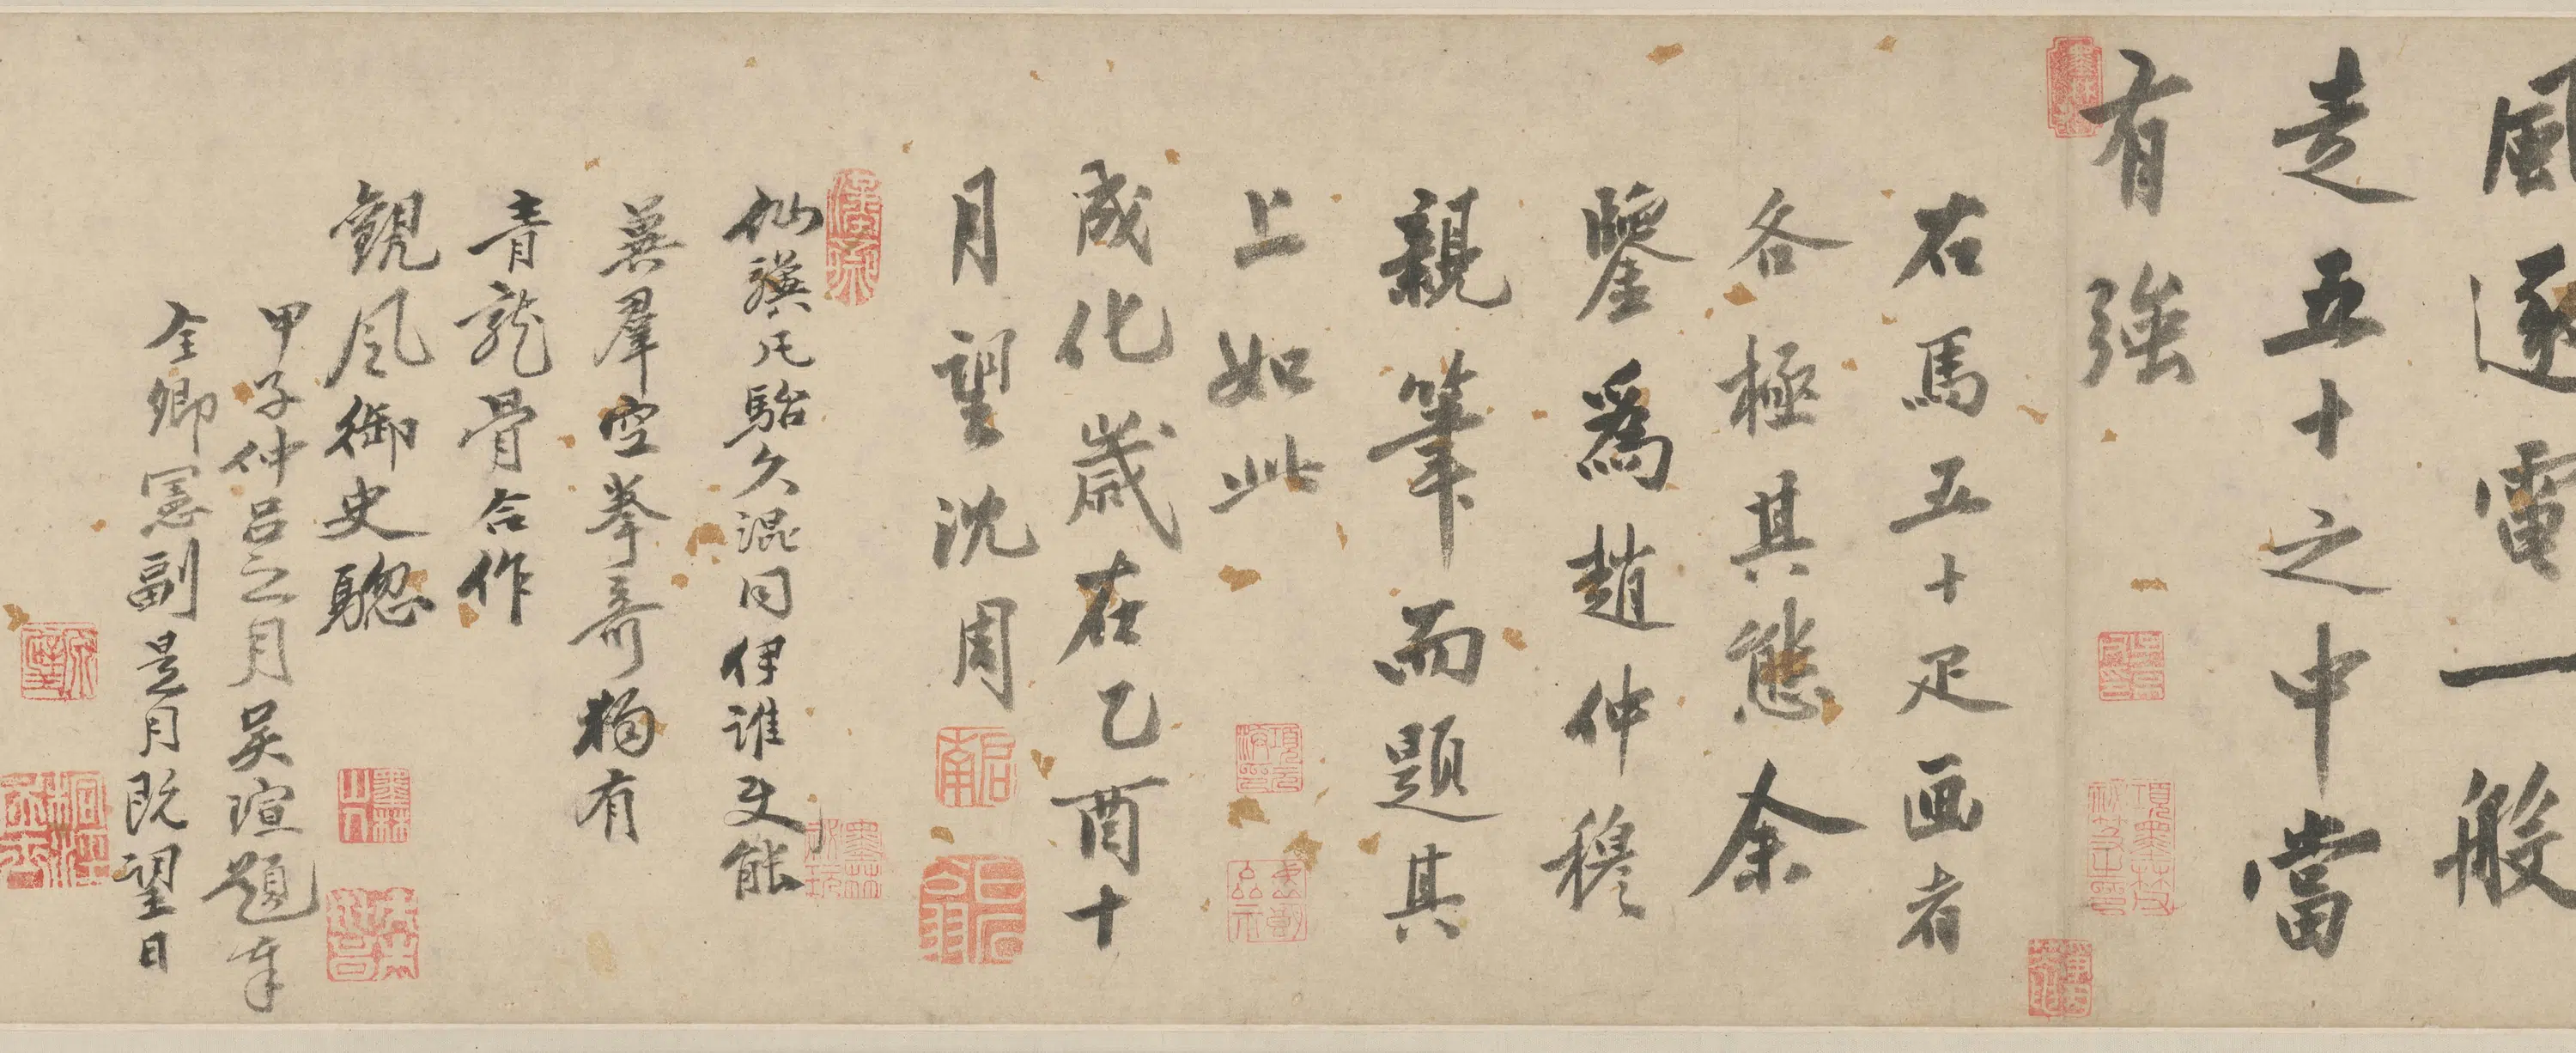 風逐電一般
走五十之中當
有強
右馬五十疋画者
各極其態余
鑒爲趙仲穆
親筆而題其
上如此
成化歲在乙酉十
月望沈周
仙驥凡駘久混同伊誰更能
冀羣空拳奇獨有
青龍骨合作
觀風御史驄
甲子仲呂之月吳瑄題奉
全卿憲副是月既望日
啓南
墨林山人